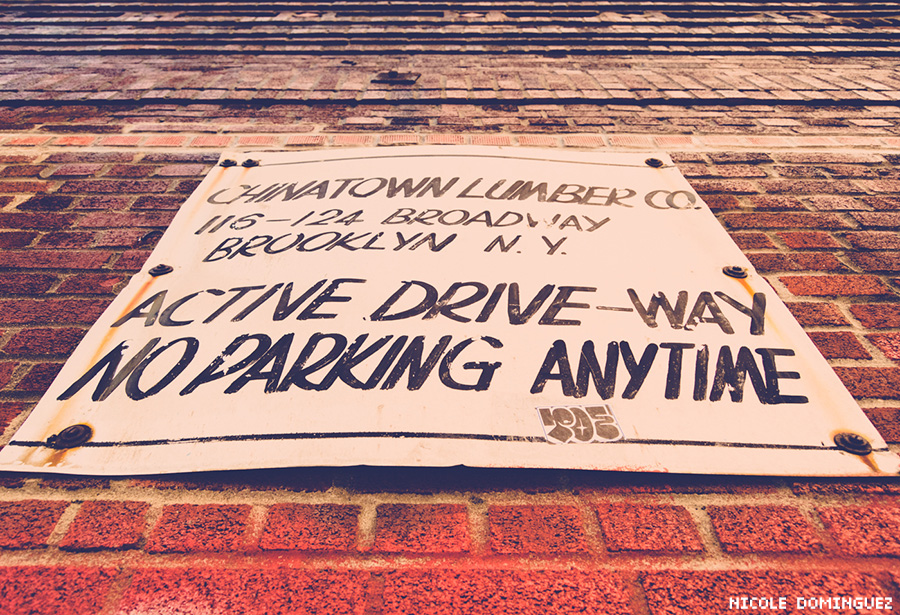 CHINATOWN LUMBER CO.
116-124 BROADWAY
BROOKLYN N.Y.
ACTIVE DRIVE-WAY
NO PARKING ANYTIME
NICOLE DOMINGUEZ